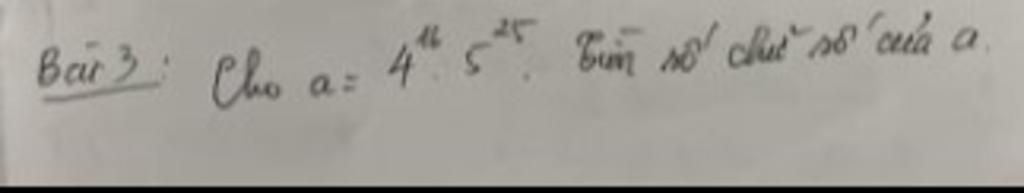 Bài 3: Cho a = 4¹⁶. 5²⁵. Tìm số chữ số của a.